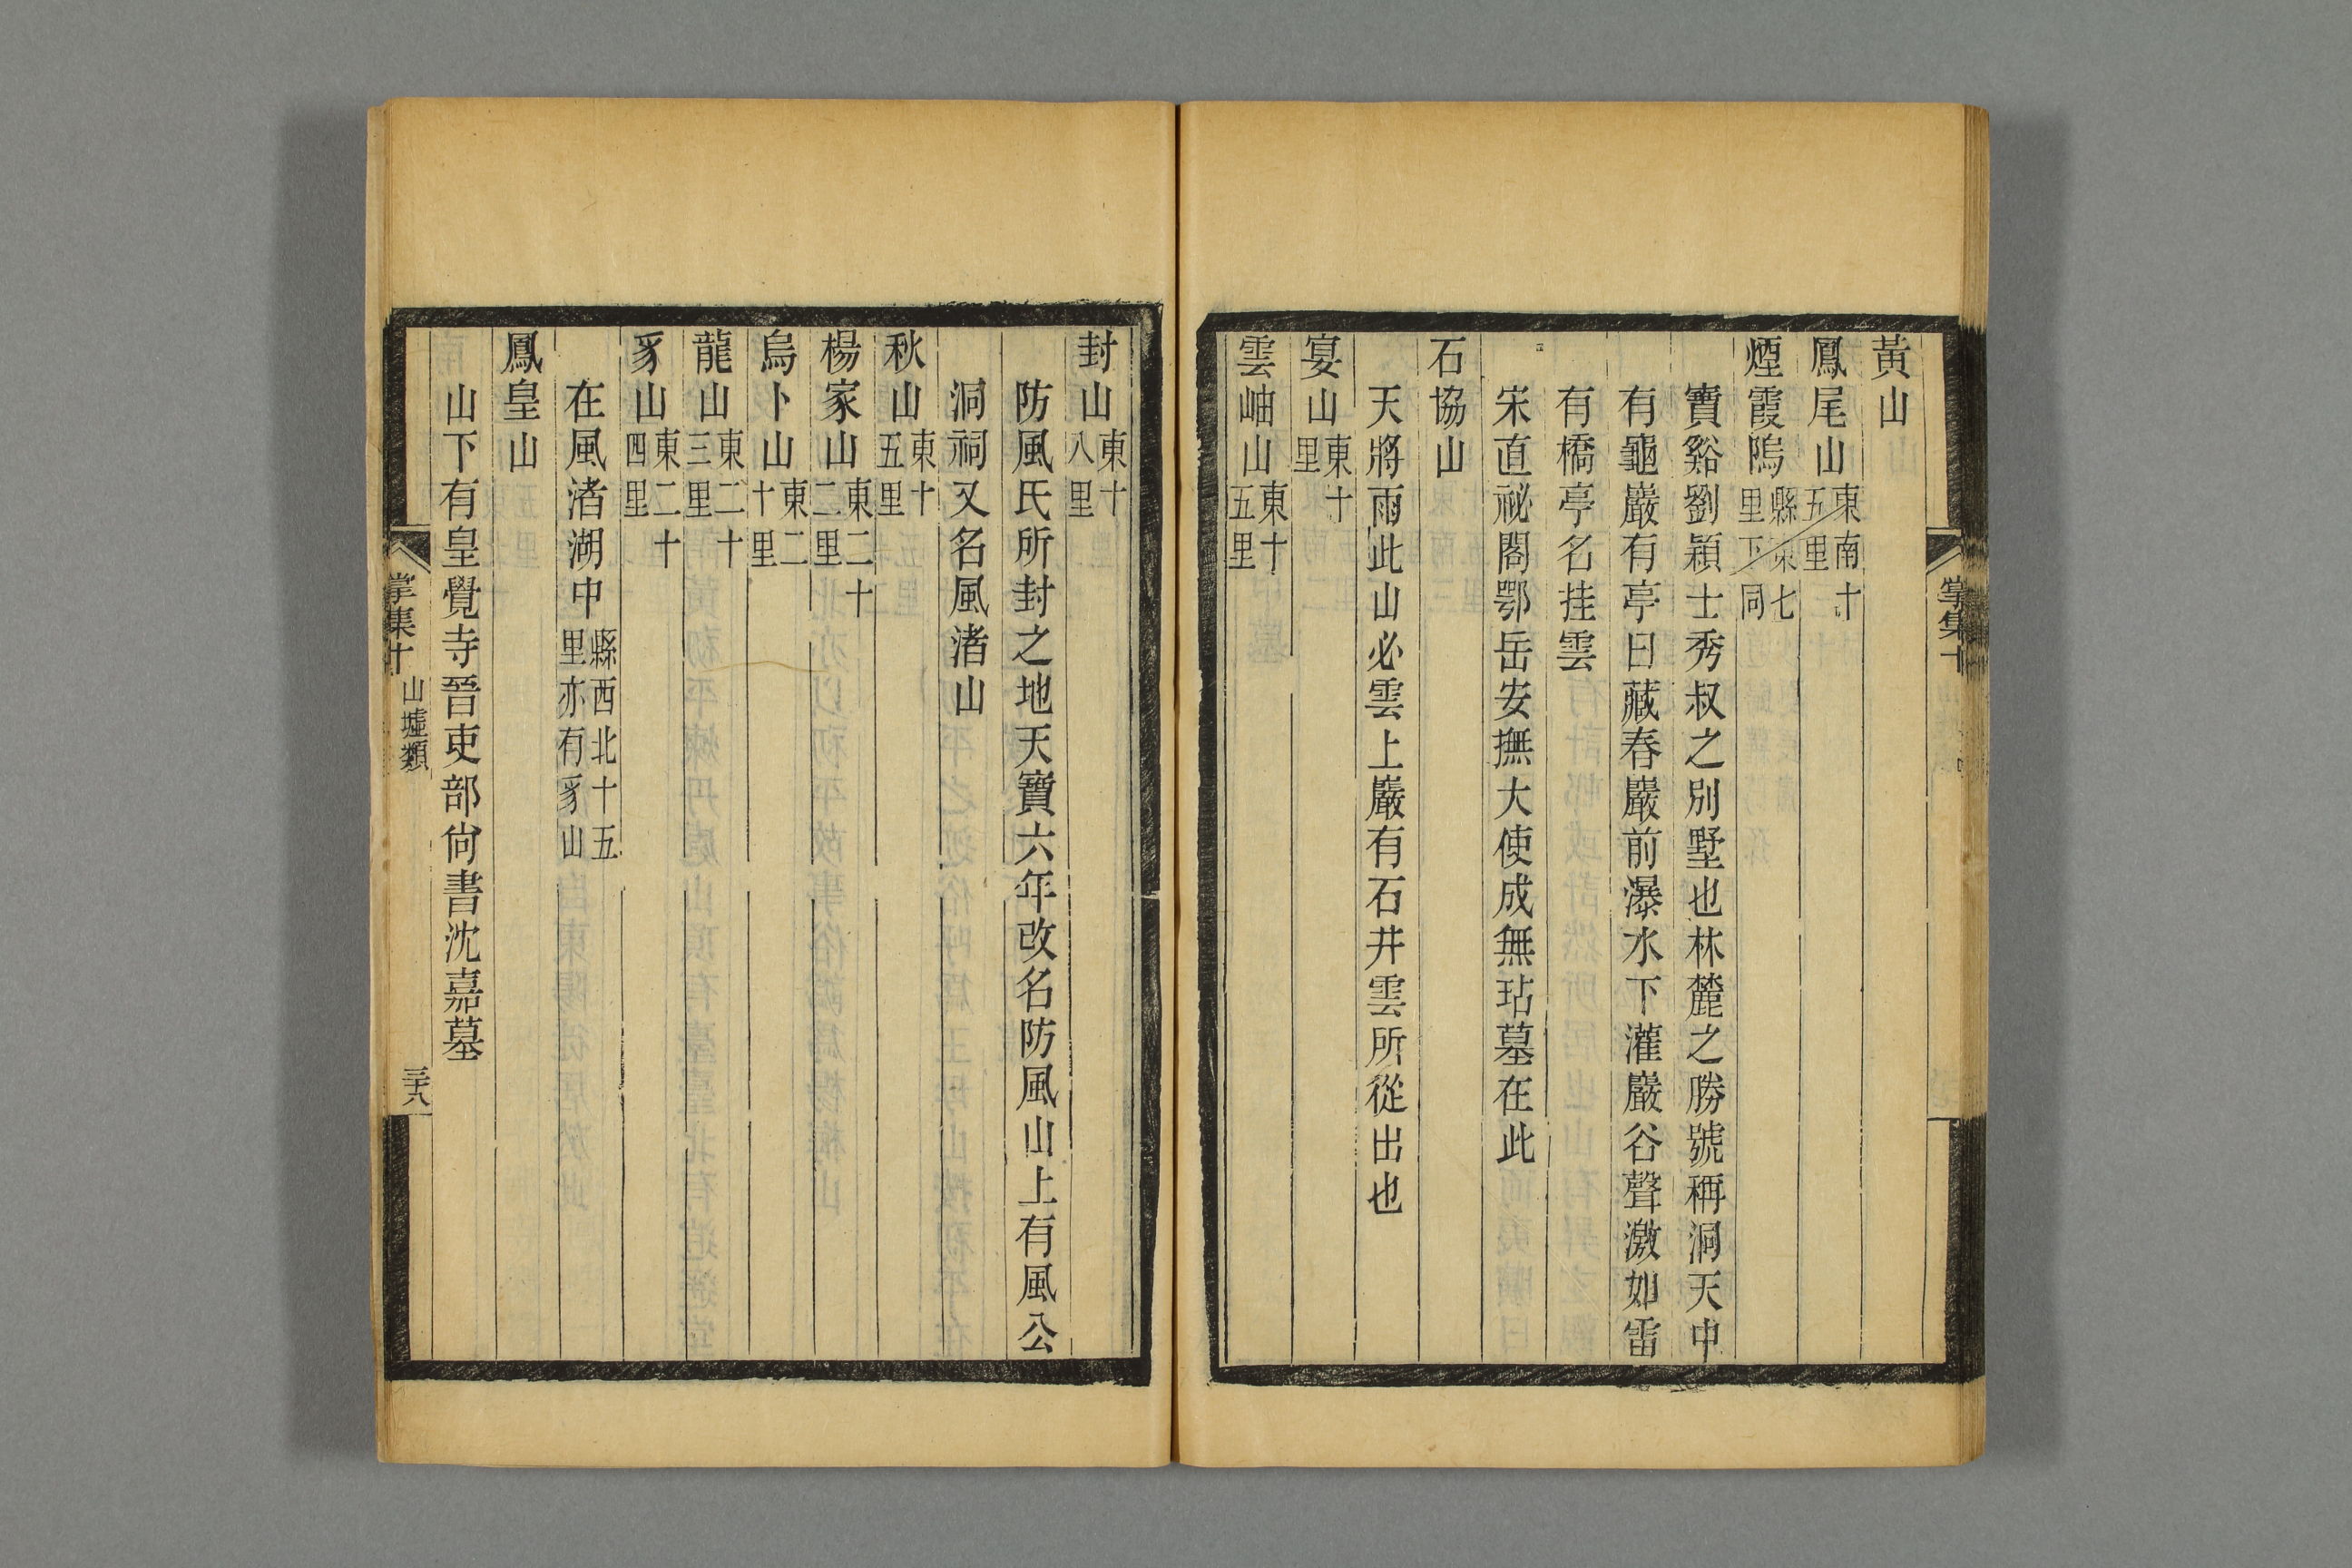 黃山
鳳尾山東南十五里
煙霞隖縣東七里下同
寶谿劉穎士秀叔之別墅也林麓之勝號稱洞天中
有龜巖有亭曰藏春巖前瀑水下灌巖谷聲激如雷
有橋亭名挂雲
宋直祕閣鄂岳安撫大使成無玷墓在此
石協山
天將雨此山必雲上巖有石井雲所從出也
宴山東十里
雲岫山東十五里
掌集十
封山東十八里
防風氏所封之地天寶六年改名防風山上有風公
洞祠又名風渚山
秋山東十五里
楊家山東二十二里
烏卜山東二十里
龍山東二十三里
豸山東二十四里
在風渚湖中縣西北十五里亦有豸山
鳳皇山
山下有皇覺寺晉吏部尙書沈嘉墓
掌集十
山墟類
三十八